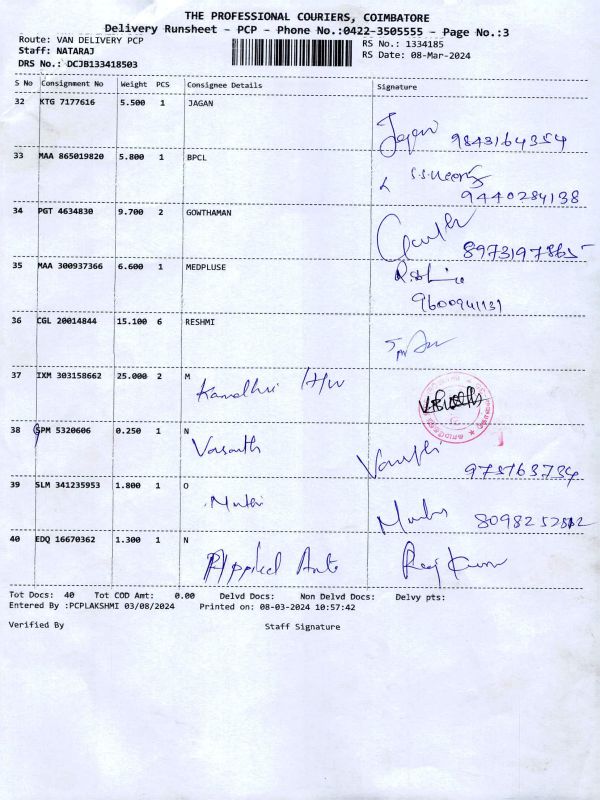 THE PROFESSIONAL COURIERS, COIMBATORE
Delivery Runsheet - PCP - Phone No.:0422-3505555 - Page No.:3
Route: VAN DELIVERY PCP RS No.: 1334185
Staff: NATARAJ RS Date: 08-Mar-2024
DRS No.: DCJB133418503
S No Consignment No Weight PCS Consignee Details Signature
32 KTG 7177616 5.500 1 JAGAN
Jagan 9843164354
33 MAA 865019820 5.800 1 BPCL
9440284138
34 PGT 4634830 9.700 2 GOWTHAMAN
8973197865
35 MAA 300937366 6.600 1 MEDPLUSE
9600941131
36 CGL 20014844 15.100 6 RESHMI
37 IXM 303158662 25.000 2 M
H/W
38 SPM 5320606 0.250 1 N
Vasanth
39 SLM 341235953 1.800 1 O
40 EDQ 16670362 1.300 1 N
Applied Auto Raj Kumar
Tot Docs: 40 Tot COD Amt: 0.00 Delvd Docs: Non Delvd Docs: Delvy pts:
Entered By :PCPLAKSHMI 03/08/2024 Printed on: 08-03-2024 10:57:42
Verified By Staff Signature